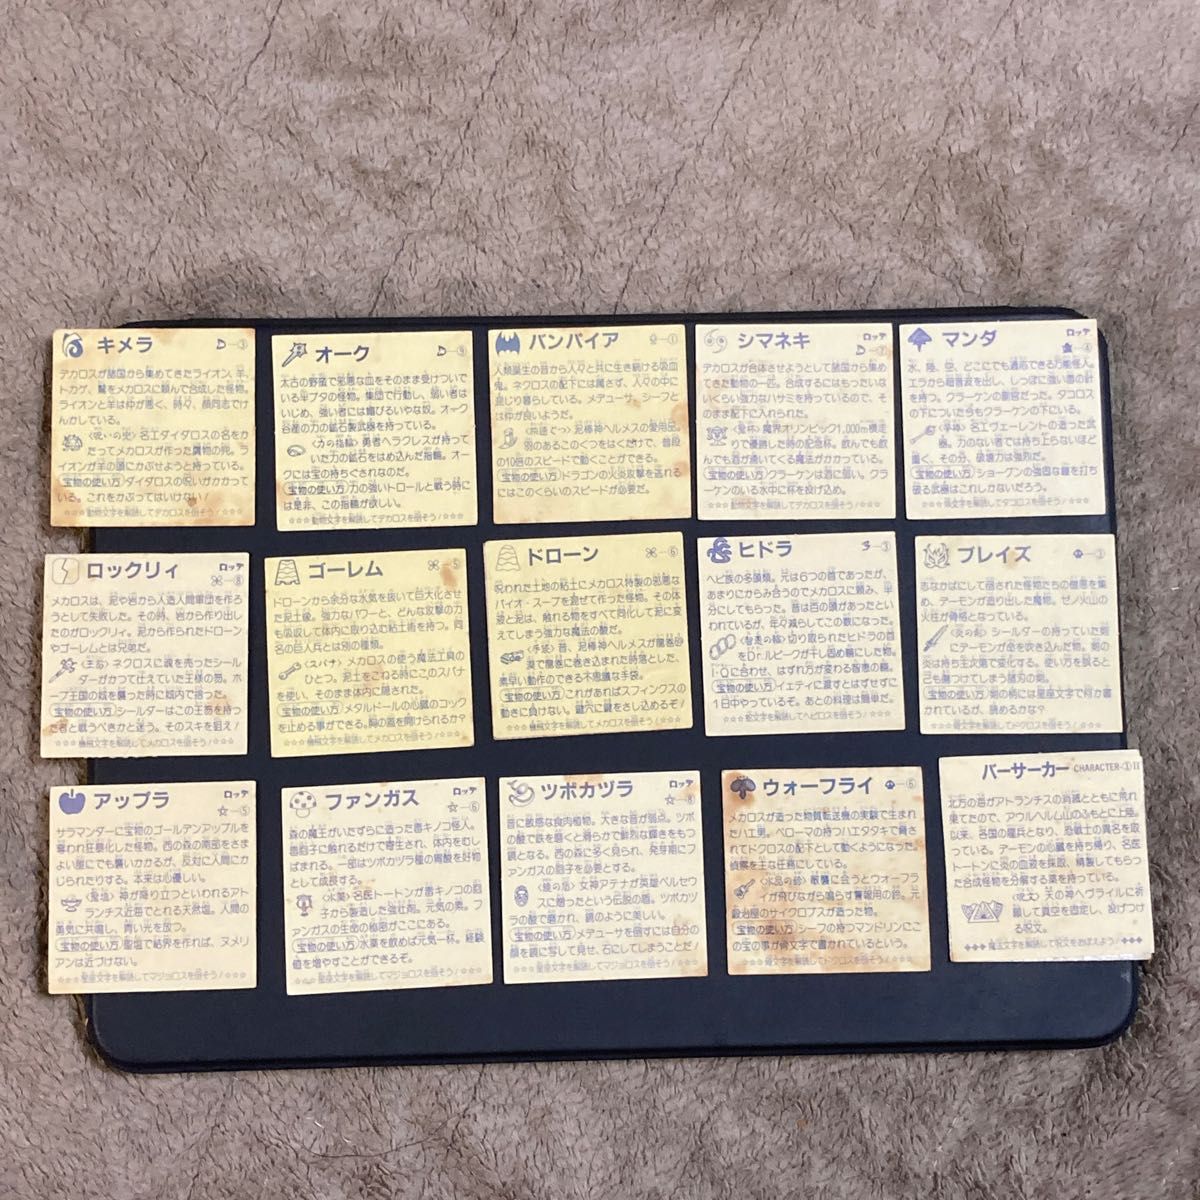 キメラ
デカロスが諸国から集めてきたライオン、羊、
トカゲ、鷲をメカロスに頼んで合成した怪物。
ライオンと羊は仲が悪く、時々、顔同志でけ
んかしている。
たってメカロスが作った贋物の兜。ラ
イオンが羊の頭にかぶせようと持っている。
宝物の使い方 ダイダロスの呪いがかかって
いる。これをかぶってはいけない!
☆☆☆動物文字を解読してデカロスを倒そう!☆☆☆
オーク
太古の野蛮で邪悪な血をそのまま受けついで
いる半ブタの怪物。集団で行動し、弱い者は
いじめ、強い者には媚びるいやな奴。オーク
谷産の力の鉱石製武器を持っている。
〈力の指輪〉勇者ヘラクレスが持って
いた力の鉱石をはめ込んだ指輪。オー
クには宝の持ちぐされなのだ。
宝物の使い方 力の強いトロールと戦う時に
は是非、この指輪が欲しい。
☆☆☆動物文字を解読してデカロスを倒そう!☆☆☆
バンパイア
人類誕生の昔から人々と共に生き続ける吸血
鬼。ネクロスの配下には属さず、人々の中に
混じり暮らしている。メデューサ、シーフと
は仲が良いようだ。
泥棒神ヘルメスの愛用品。
羽のあるこのくつをはくだけで、普段
の10倍のスピードで動くことができる。
宝物の使い方 ドラゴンの火炎攻撃を逃れる
にはこのくらいのスピードが必要だ。
シマネキ
ロッテ
デカロスが合体させようとして諸国から集め
てきた動物の一匹。合成するにはもったいな
いくらい強力なハサミを持っているので、そ
のまま配下に入れられた。
〈聖杯〉魔界オリンピック1,000m横走
りで優勝した時の記念杯。飲んでも飲
んでも酒が湧いてくる魔法がかかっている。
宝物の使い方 クラーケンは酒に弱い。クラ
ーケンのいる水中に杯を投げ込め。
☆☆☆動物文字を解読してデカロスを倒そう!☆☆☆
マンダ
ロッテ
水、陸、空、どこにでも適応できる万能怪人。
エラから超音波を出し、しっぽに強い毒の針
を持つ。クラーケンの副官だった。タコロス
の下についた今もクラーケンの下にいる。
名工ヴェーレントの造った武
器。力のない者では持ち上らないほど
重く、その分、破壊力は強烈だ。
宝物の使い方 ショーゲンの強固な鎧を打ち
破る武器はこれしかないだろう。
ロックリィ
ロッテ
メカロスは、泥や岩から人造人間軍団を作ろ
うとして失敗した。その時、岩から作り出し
たのがロックリィ。泥から作られたドローン
やゴーレムとは兄弟だ。
〈王笏〉ネクロスに魂を売ったシール
ダーがかつて仕えていた王様の笏。ホ
ープ王国の城を襲った時に城内で拾った。
宝物の使い方 シールダーはこの王笏を持っ
た者と戦うべきかと迷う。そのスキを狙え!
☆☆☆機械文字を解読してメカロスを倒そう!☆☆☆
ゴーレム
ドローンから余分な水気を抜いて巨大化させ
た泥土像。強力なパワーと、どんな攻撃の力
も吸収して体内に取り込む粘土術を持つ。同
名の巨人兵とは別の種類。
〈スパナ〉メカロスの使う魔法工具の
ひとつ。泥土をこねる時にこのスパナ
を使い、そのまま体内に隠された。
宝物の使い方 メタルドールの心臓のコック
を止める事ができる。胸の蓋を開けられるか?
☆☆☆機械文字を解読してメカロスを倒そう!☆☆☆
ドローン
呪われた土地の粘土にメカロス特製の邪悪な
バイオ・スープを混ぜて作った怪物。その体
液と泥は、触れる物をすべて同化して泥に変
えてしまう強力な魔法の酸だ。
〈手袋〉昔、泥棒神ヘルメスが魔巻砂
漠で竜巻に巻き込まれた時落とした、
素早い動作のできる不思議な手袋。
宝物の使い方 これがあればスフィンクスの
動きに負けない。鍵穴に鍵をさし込めるぞ!
☆☆☆機械文字を解読してメカロスを倒そう!☆☆☆
ヒドラ
ヘビ族の多頭類。元は6つの首であったが、
あまりにからみ合うのでメカロスに頼み、半
分にしてもらった。昔は百の頭があったとい
われているが、年々減らしてこの数になった。
〈智恵の輪〉切り取られたヒドラの首
をDr.ルビークが干し固め輪にした物。
I・Qに合わせ、はずれ方が変わる智恵の輪。
宝物の使い方 イエティに渡すとはずせずに
1日中やっているぞ。あとの料理は簡単だ。
ブレイズ
みなかばにして宿された怪物たちの憎悪を集
め、デーモンが造り出した魔物。ゼノ火山の
火柱が骨格となっている。
〈炎の剣〉シールダーの持っていた剣
にデーモンが命を吹き込んだ物。剣の
炎は持ち主次第で変化する。使い方を誤ると
己も傷つけてしまう諸刃の剣。
宝物の使い方 剣の柄には星座文字で何か書
かれているが、読めるかな?
アップラ
ロッテ
サラマンダーに宝物のゴールデンアップルを
奪われ狂暴化した怪物。西の森の南部をさま
よい誰にでも襲いかかるが、反対に人間にか
じられたりする。本来は心優しい。
〈聖塩〉神が降り立つといわれるアト
ランチス近海でとれる天然塩。人間の
勇気に共鳴し、青い光を放つ。
宝物の使い方 聖塩で結界を作れば、ヌメリ
アンは近づけない。
☆☆☆星座文字を解読してマジョロスを倒そう!☆☆☆
ファンガス
ロッテ
森の魔王がいたずらに造った毒キノコ怪人。
毒胞子に触れるだけで寄生され、体内をむし
ばまれる。一部はツボカヅラ種の胃酸を好物
として成長する。
〈水薬〉名医トートンが毒キノコの胞
子から製造した強壮剤。元気の素。フ
ァンガスの生命の秘密がここにある。
宝物の使い方 水薬を飲めば元気一杯。経験
値を増やすことができるぞ。
☆☆☆星座文字を解読してマジョロスを倒そう!☆☆☆
ツボカヅラ
ロッテ
音に敏感な食肉植物。大きな音が弱点。ツボ
の酸で鉄を磨くと滑らかで鮮烈な輝きをもつ
鏡となる。西の森に多く見られ、発芽期にフ
ァンガスの胞子を必要とする。
〈鏡の盾〉女神アテナが英雄ペルセウ
スに贈ったという伝説の盾。ツボカヅ
ラの酸で磨かれ、鏡のように美しい。
宝物の使い方 メデューサを倒すには自分の
顔を鏡に写して見せ、石にしてしまうことだ!
☆☆☆星座文字を解読してマジョロスを倒そう!☆☆☆
ウォーフライ
メカロスが造った物質転送機の実験で生まれ
たハエ男。ベローマの持つハエタタキで脅さ
れてドクロスの配下として動くようになった。
偵察を主な任務にしている。
〈水晶の鈴〉敵襲に会うとウォーフラ
イが飛びながら鳴らす警報用の鈴。元
鍛冶屋のサイクロプスが造った物。
宝物の使い方 シーフの持つマンドリンにこ
の宝の事が骨文字で書かれているという。
☆☆☆骨文字を解読してドクロスを倒そう!☆☆☆
バーサーカー CHARACTER-①II
北方の昔がアトランチスの消滅とともに荒れ
果てたので、アウルヘルム山のふもとに上陸。
以来、各国の雇兵となり、恐戦士の異名を取
っている。デーモンの心臓を持ち帰り、名医
トートンに炎の血液を採取、精製してもらっ
た合成怪物を分解する薬を持っている。
天の神ヘヴライルに祈
願して真空を固定し、投げつけ
る呪文。
◆◆◆魔法文字を解読して呪文をおぼえよう!◆◆◆